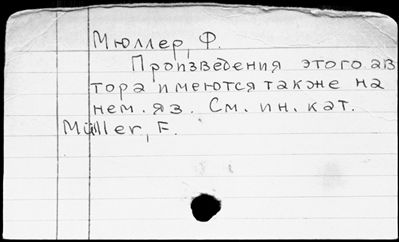 Мюллер, Ф.
Произведения этого ав
тора имеются также на
нем. яз. См. ин. кат.
Müller, F.